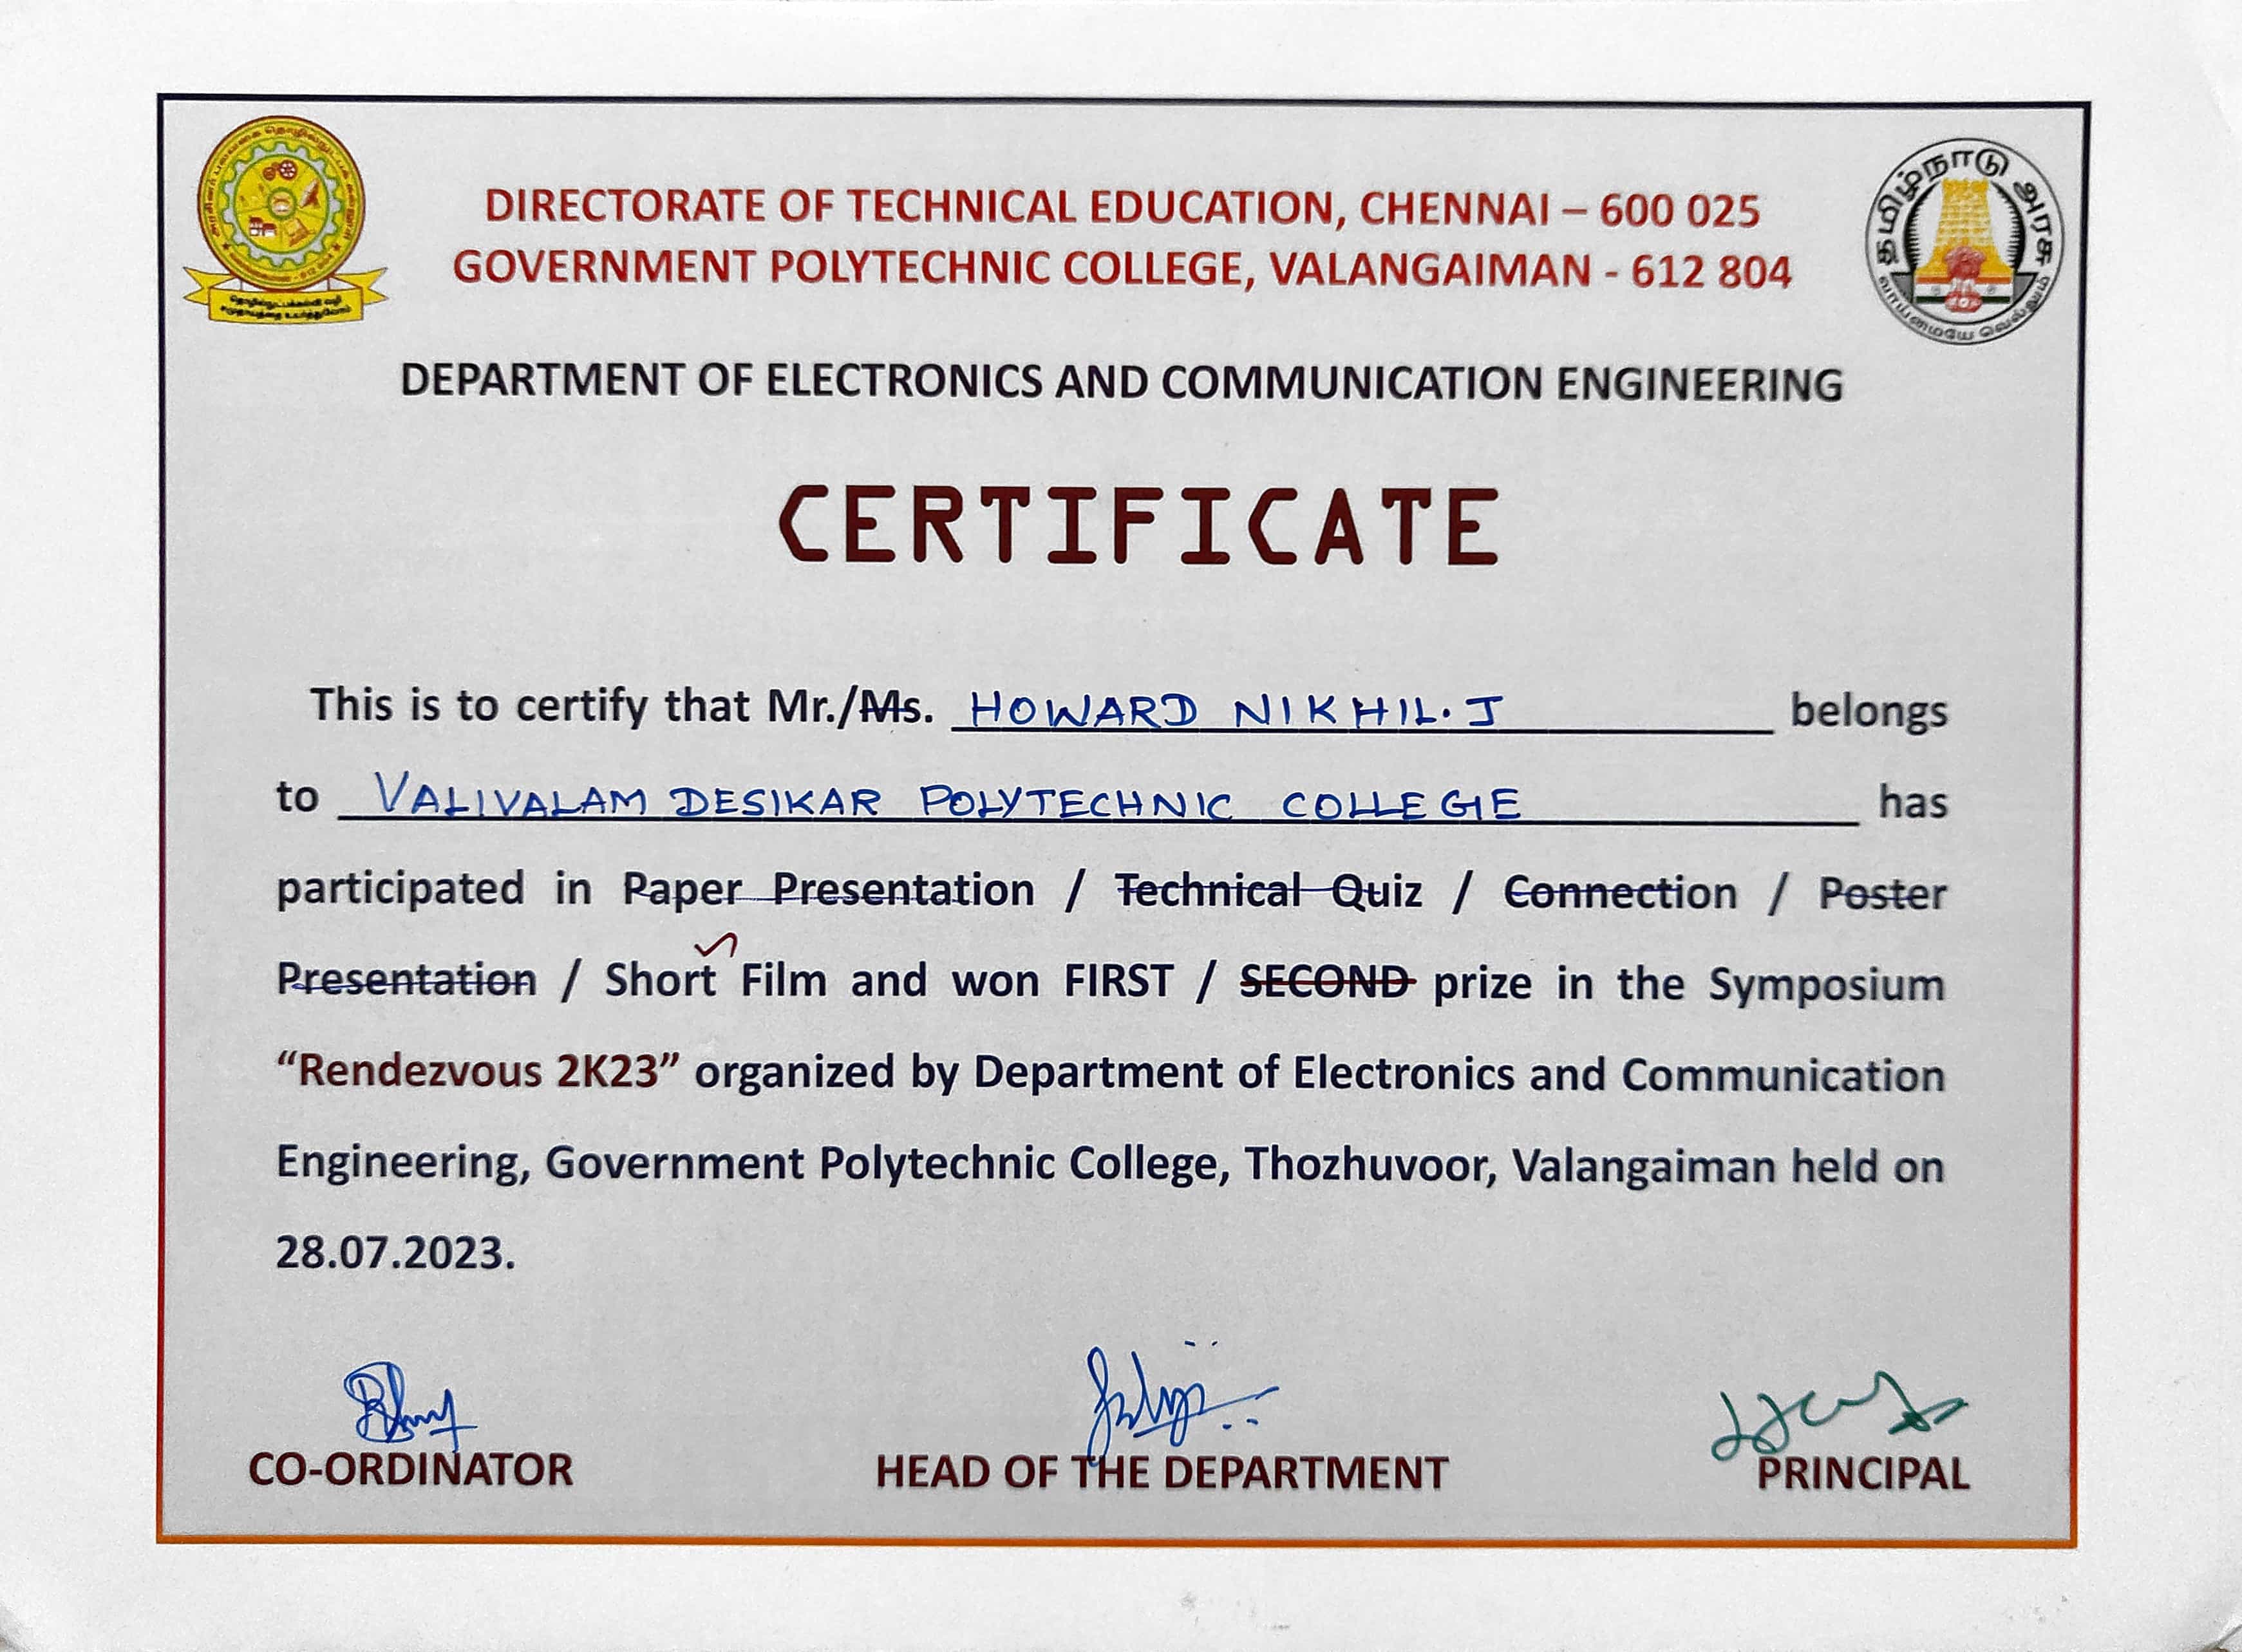 தமிழ்நாடு அரசு
வாய்மையே வெல்லும்
DIRECTORATE OF TECHNICAL EDUCATION, CHENNAI – 600 025
GOVERNMENT POLYTECHNIC COLLEGE, VALANGAIMAN - 612 804
DEPARTMENT OF ELECTRONICS AND COMMUNICATION ENGINEERING
CERTIFICATE
This is to certify that Mr./Ms. HOWARD NIKHIL. J belongs
to VALIVALAM DESIKAR POLYTECHNIC COLLEGE has
participated in Paper Presentation / Technical Quiz / Connection / Poster
Presentation / Short Film and won FIRST / SECOND prize in the Symposium
“Rendezvous 2K23” organized by Department of Electronics and Communication
Engineering, Government Polytechnic College, Thozhuvoor, Valangaiman held on
28.07.2023.
CO-ORDINATOR HEAD OF THE DEPARTMENT PRINCIPAL